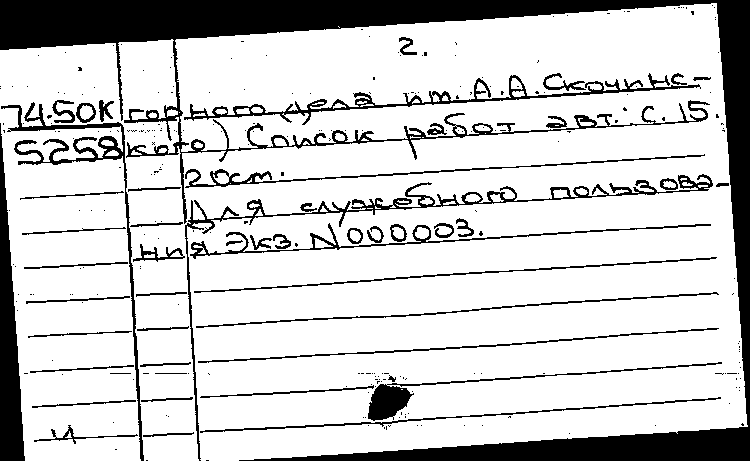 2.
74.50К горного дела им. А.А.Скочинс-
5258 кого) Список работ авт.: с. 15.
20см.
Для служебного пользова-
ния. Экз. N000003.
И